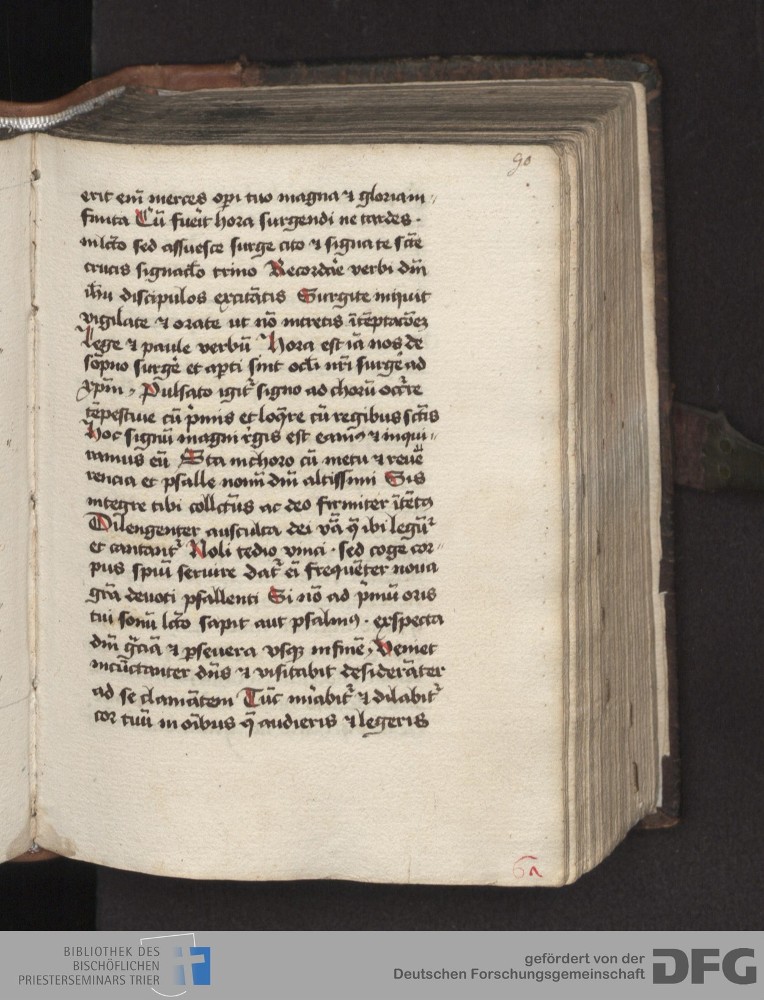 90
erit em̄ merces op̄i tuo magna ⁊ gloria in-
finita Cū fuerit hora surgendi ne tardes ·
in lc̄to sed assuesce surge cito ⁊ signa te scē
crucis signac̄lo trino Recordāe verbi dn̄i
ih̄u discipulos excitātis Surgite inquit
vigilate ⁊ orate ut nō intretis ītēptacōeʒ
lege ⁊ paule verbū Hora est iā nos de
sōpno surgē et apti sint ocl̄i nr̄i surgē ad
xp̄m · Pulsato igit᷑ signo ad chorū
tēpestiue cū p̄mis et loq̄re cū regibus sc̄tis
Hoc signū magni r̄gis est eamꝰ ⁊ inqui-
ramus eū Sta in choro cū metu ⁊ reuē
rencia et psalle nomī dn̄i altissimi Sis
integre tibi collc̄tus ac deo firmiter ītētꝰ
Dilengenter ausculta dei v̄ba q̄ ibi legūt᷑
et cantant᷑ Noli tedio vinci · sed coge cor-
pus spūi seruire dat᷑ ei frequēter noua
grā deuoti psallenti Si nō ad p̄mū oris
tui sonū lc̄to sapit aut psalmꝰ · exspecta
dm̄ ⁊ p̄seuera vsqꝫ in finē · Veniet
incūctanter dn̄s ⁊ visitabit desiderāter
ad se clamātem Tūc mīrabit᷑ ⁊ dilabit᷑
cor tuū in oībus q̄ audieris ⁊ legeris
6a
BIBLIOTHEK DES
BISCHÖFLICHEN
PRIESTERSEMINARS TRIER
gefördert von der
Deutschen Forschungsgemeinschaft
DFG